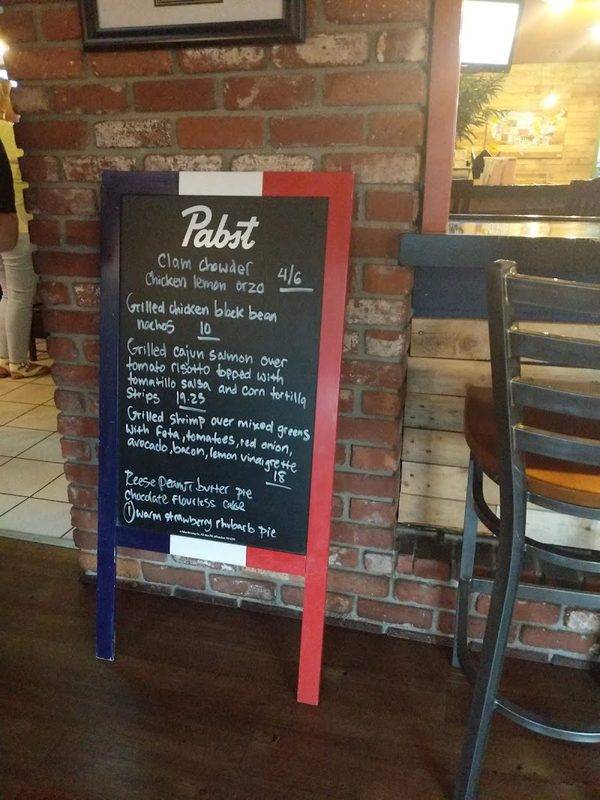 Pabst
Clam chowder
Chicken lemon orzo 4/6
Grilled chicken black bean
nachos 10
Grilled cajun salmon over
tomato risotto topped with
tomatillo salsa and corn tortilla
strips 19.25
Grilled shrimp over mixed greens
with Feta, tomatoes, red onion,
avocado, bacon, lemon vinaigrette
18
Reese Peanut butter pie
Chocolate flourless cake
1 warm strawberry rhubarb pie